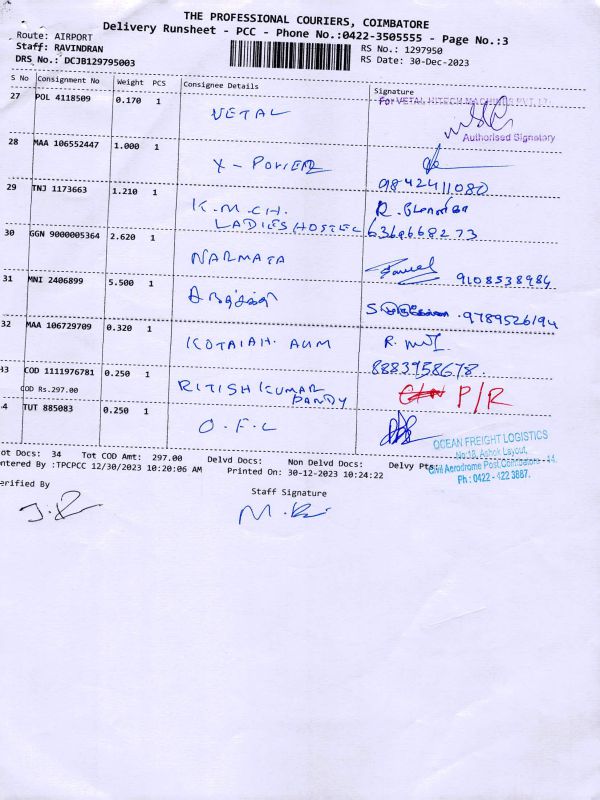 THE PROFESSIONAL COURIERS, COIMBATORE
Delivery Runsheet - PCC - Phone No.:0422-3505555 - Page No.:3
Route: AIRPORT
Staff: RAVINDRAN RS No.: 1297950
DRS No.: DCJB129795003 RS Date: 30-Dec-2023
S No Consignment No Weight PCS Consignee Details Signature
27 POL 4118509 0.170 1 VETAL For VETAL HITECH MACHINES PVT.LTD
Authorised Signatory
28 MAA 106552447 1.000 1 X-POVIER
9842411080
29 TNJ 1173663 1.210 1 K.M.CH. R.
LADIES HOSTEL 6369668273
30 GGN 9000005364 2.620 1 NARMATA 9108538984
31 MNI 2406899 5.500 1 9789526194
32 MAA 106729709 0.320 1 KOTAIAH. AUM R.
8883958678.
33 COD 1111976781 0.250 1 RITISH KUMAR P/R
COD Rs.297.00 PANDY
34 TUT 885083 0.250 1 O.F.L
OCEAN FREIGHT LOGISTICS
No:18, Ashok Layout,
Civil Aerodrome Post, Coimbatore - 14.
Ph : 0422 - 422 3887.
ot Docs: 34 Tot COD Amt: 297.00 Delvd Docs: Non Delvd Docs: Delvy Pts:
ntered By :TPCPCC 12/30/2023 10:20:06 AM Printed On: 30-12-2023 10:24:22
erified By Staff Signature